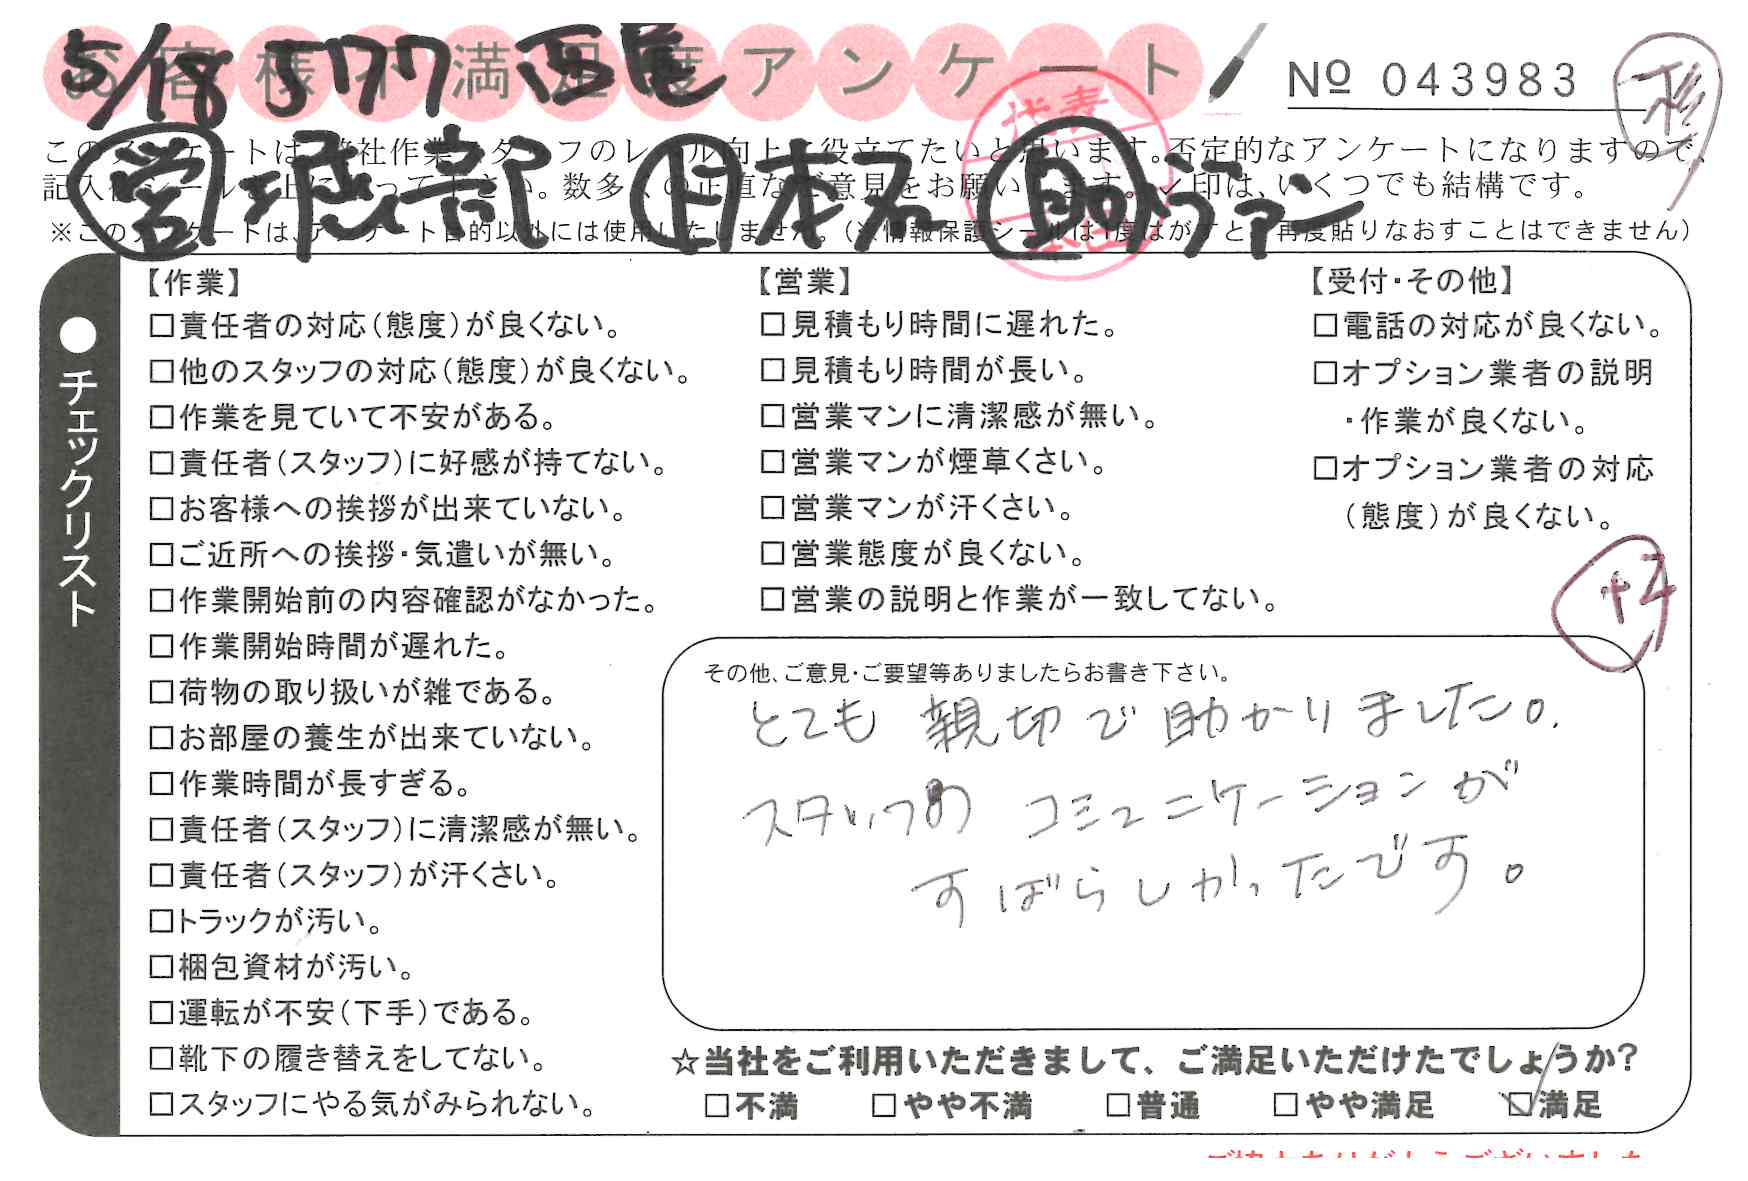 お客様不満足度アンケート
5/18 577
№ 043983
杉
このアンケートは、弊社作業スタッフのレベル向上に役立てたいと思います。否定的なアンケートになりますので、
記入後シールを上に貼って下さい。数多くの正直なご意見をお願いします。✓印は、いくつでも結構です。
※このアンケートは、アンケート目的以外には使用いたしません。(※情報保護シールは1度はがすと、再度貼りなおすことはできません)
営 堀 部
代表
チェックリスト
【作業】
□責任者の対応(態度)が良くない。
□他のスタッフの対応(態度)が良くない。
□作業を見ていて不安がある。
□責任者(スタッフ)に好感が持てない。
□お客様への挨拶が出来ていない。
□ご近所への挨拶・気遣いが無い。
□作業開始前の内容確認がなかった。
□作業開始時間が遅れた。
□荷物の取り扱いが雑である。
□お部屋の養生が出来ていない。
□作業時間が長すぎる。
□責任者(スタッフ)に清潔感が無い。
□責任者(スタッフ)が汗くさい。
□トラックが汚い。
□梱包資材が汚い。
□運転が不安(下手)である。
□靴下の履き替えをしてない。
□スタッフにやる気がみられない。
【営業】
□見積もり時間に遅れた。
□見積もり時間が長い。
□営業マンに清潔感が無い。
□営業マンが煙草くさい。
□営業マンが汗くさい。
□営業態度が良くない。
□営業の説明と作業が一致してない。
【受付・その他】
□電話の対応が良くない。
□オプション業者の説明
・作業が良くない。
□オプション業者の対応
(態度)が良くない。
その他、ご意見・ご要望等ありましたらお書き下さい。
とても 親切で 助かりました。
スタッフの コミュニケーションが
すばらしかったです。
☆当社をご利用いただきまして、ご満足いただけたでしょうか?
□不満 □やや不満 □普通 □やや満足 ☑満足